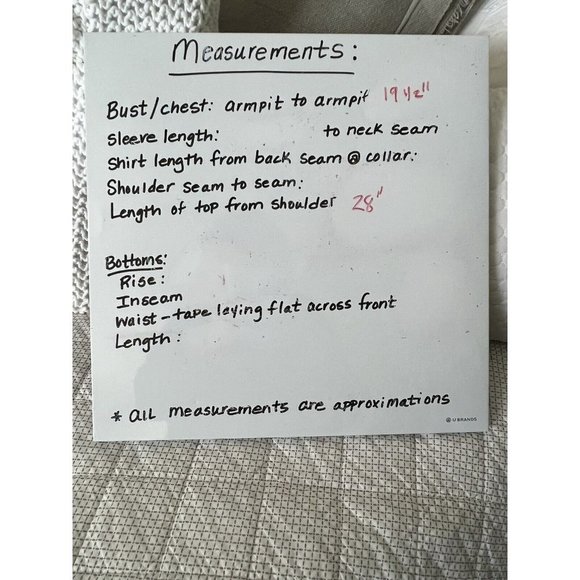 Measurements:
Bust/chest: armpit to armpit 19 1/2"
Sleeve length: to neck seam
Shirt length from back seam @ collar:
Shoulder seam to seam:
Length of top from shoulder 28"
Bottoms:
Rise:
Inseam
Waist - tape laying flat across front
Length:
* ALL measurements are approximations
U BRANDS